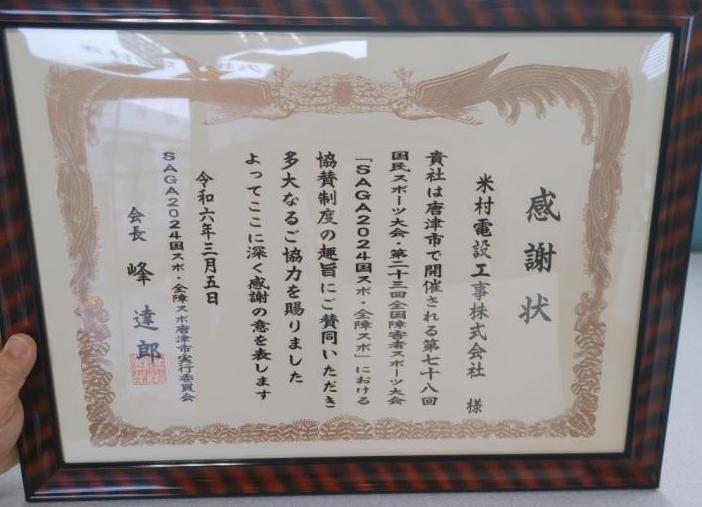 感謝状
米村電設工事株式会社 様
貴社は唐津市で開催される第七十八回
国民スポーツ大会・第二十三回全国障害者スポーツ大会
「SAGA2024国スポ・全障スポ」における
協賛制度の趣旨にご賛同いただき
多大なるご協力を賜りました
よってここに深く感謝の意を表します
令和六年三月五日
SAGA2024国スポ・全障スポ唐津市実行委員会
会長 峰 達郎